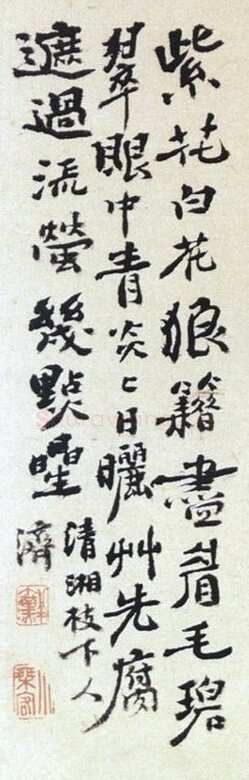 紫花白花狼籍盡眉毛碧
翠眼中青炎々日曬艸先腐
遮過流螢幾點暒
清湘枝下人
濟